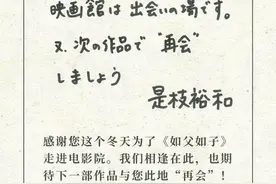 映画館は出会いの場です。
又、次の作品で“再会”
しましょう
是枝裕和
感谢您这个冬天为了《如父如子》
走进电影院。我们相逢在此，也期
待下一部作品与您此地“再会”！